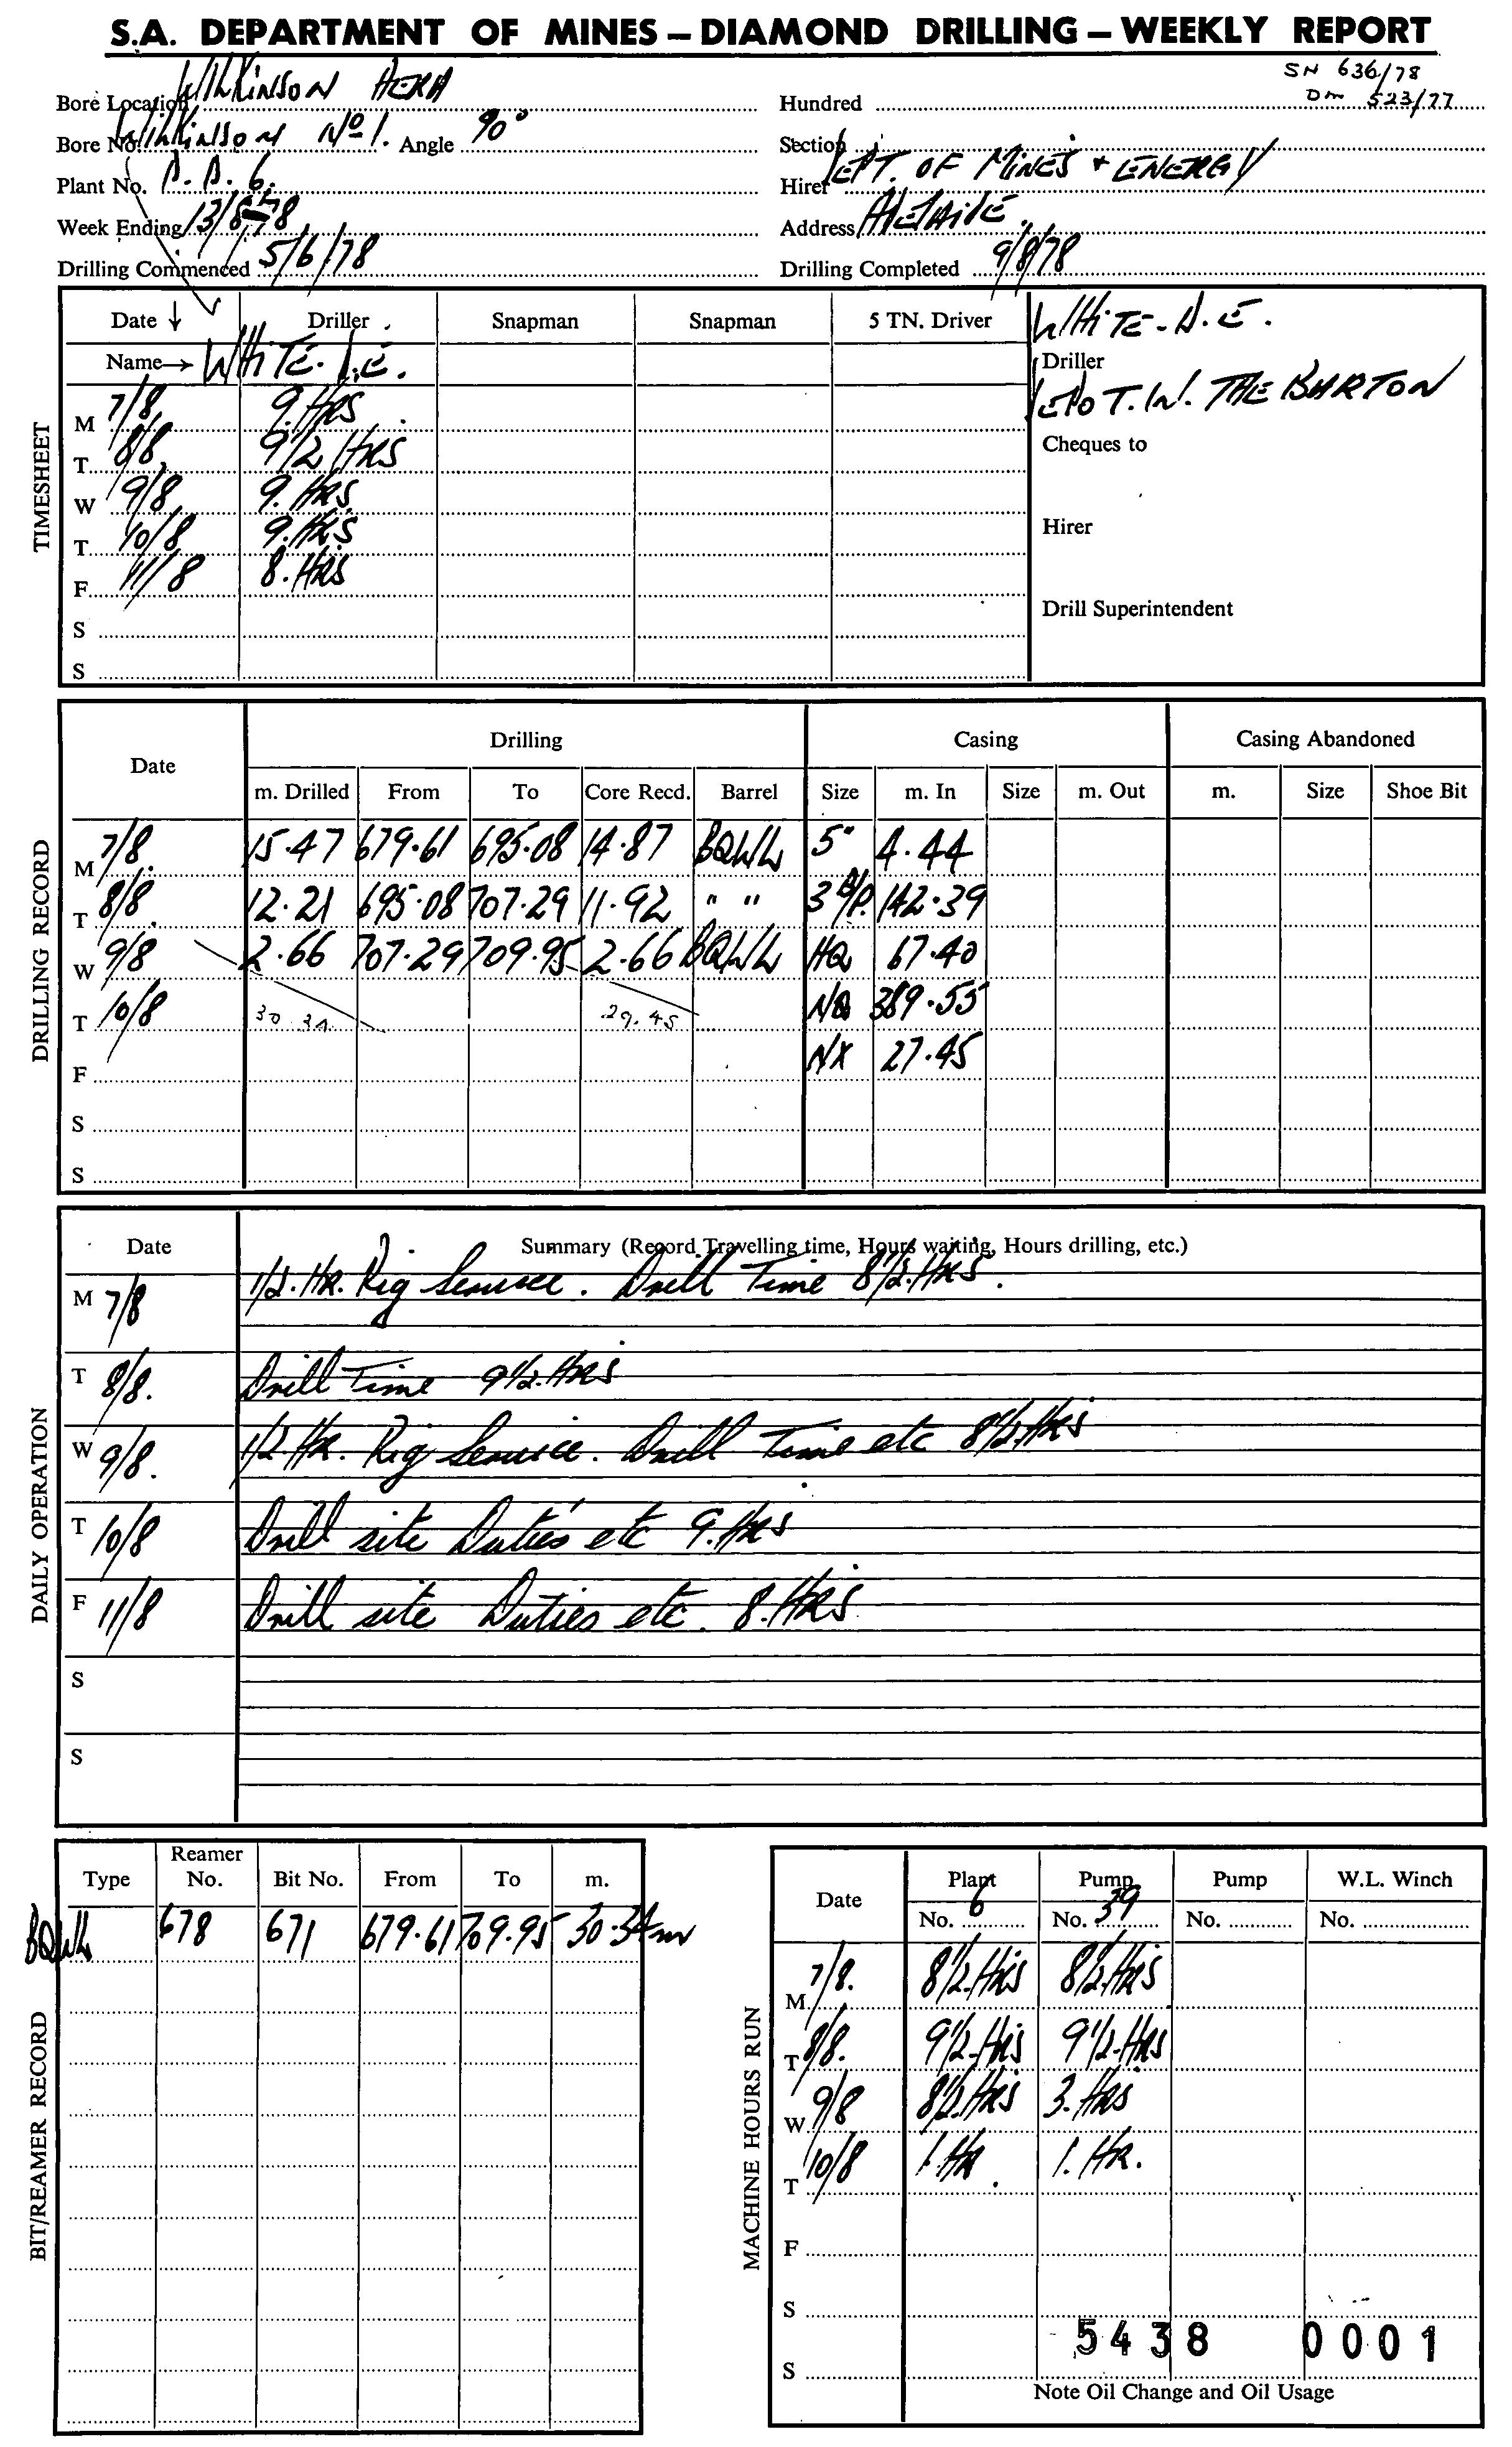 S.A. DEPARTMENT OF MINES – DIAMOND DRILLING – WEEKLY REPORT
SN 636/78
DM 523/77
Bore Location WILKINSON AREA
Hundred
Bore No. WILKINSON No 1. Angle 90°
Section
Plant No. D.D. 6.
Hirer DEPT. OF MINES & ENERGY
Week Ending 13/8/78
Address ADELAIDE.
Drilling Commenced 5/6/78
Drilling Completed 9/8/78
TIMESHEET
Date ↓ Driller Snapman Snapman 5 TN. Driver
Name→ WHITE. D.E.
M 7/8. 9. HRS
T 8/8. 9 1/2 HRS
W 9/8 9. HRS
T 10/8 9. HRS
F 11/8 8. HRS
S
S
WHITE - D.E.
Driller
DEPOT. W. THEBARTON
Cheques to
Hirer
Drill Superintendent
DRILLING RECORD
Date Drilling Casing Casing Abandoned
m. Drilled From To Core Recd. Barrel Size m. In Size m. Out m. Size Shoe Bit
M 7/8. 15.47 679.61 695.08 14.87 BQWL 5" 4.44
T 8/8. 12.21 695.08 707.29 11.92 " " 142.39
W 9/8 2.66 707.29 709.95 2.66 BQWL HQ 67.40
T 10/8 30.34 29.45 NQ 389.55
F NX 27.45
S
S
DAILY OPERATION
Date Summary (Record Travelling time, Hours waiting, Hours drilling, etc.)
M 7/8 1/2. HR. Rig Service. Drill Time 8 1/2. HRS.
T 8/8. Drill Time 9 1/2. HRS
W 9/8. 1/2 HR. Rig Service. Drill Time etc 8 1/2. HRS
T 10/8 Drill site Duties etc 9. HRS
F 11/8 Drill site Duties etc. 8. HRS
S
S
BIT/REAMER RECORD
Type Reamer No. Bit No. From To m.
BQWL 678 671 679.61 709.95 30.34m
MACHINE HOURS RUN
Date Plant Pump Pump W.L. Winch
No. 6 No. 39 No. No.
M 7/8. 8 1/2. HRS 8 1/2. HRS
T 8/8. 9 1/2. HRS 9 1/2. HRS
W 9/8 8 1/2. HRS 3. HRS
T 10/8 1. HR 1. HR.
F
S
5438 0001
S
Note Oil Change and Oil Usage